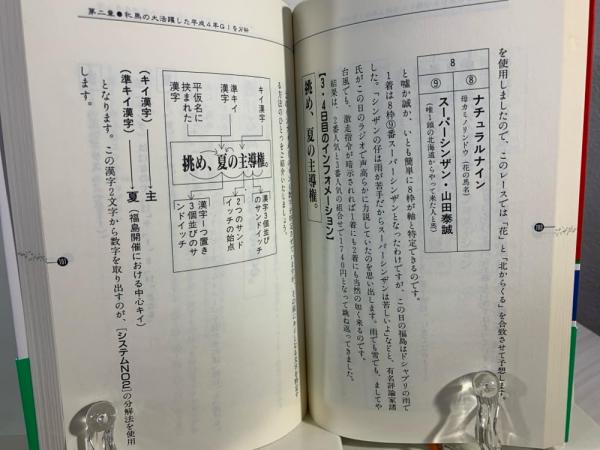 を使用しましたので、このレースでは「花」と「北からくる」を合致させて予想します。
8
⑧
ナチュラルナイン
母カミノリンドウ（花の馬名）
⑨
スーパーシンザン・山田泰誠
（唯1頭の北海道からやって来た人と馬）
と嘘か誠か、いとも簡単に8枠が軸と特定できるのです。
1着は8枠⑨番スーパーシンザンとなったわけですが、この日の福島はドシャブリの雨で
した。「シンザンの仔は雨が苦手だからスーパーシンザンは苦しいよ」などと、有名評論家諸
氏がこの日のラジオで声高らかに力説していたのを思い出します。雨でも雪でも、ましてや
台風でも、激走指令が暗示されれば1着にも2着にも当然の如く来るのです。
結果は、2番人気と3番人気の組合せで1740円となって跳ね返ってきました。
【3・4日目のインフォメーション】
挑め、夏の主導権。
101
第二章●牝馬の大活躍した平成4年GⅠを分析
る方法のひとつをご紹介いたしましょう。
キイ漢字
準キイ
漢字
平仮名に
挟まれた
漢字
挑め、夏の主導権。
漢字3個並び
のサンドイッチ
2つのサンド
イッチの始点
漢字1つ置き
3個並びのサ
ンドイッチ
（キイ漢字）――主
（準キイ漢字）――夏（福島開催における中心キイ）
となります。この漢字2文字から数字を取り出すのが、［システムNO2］の分解法を使用
します。